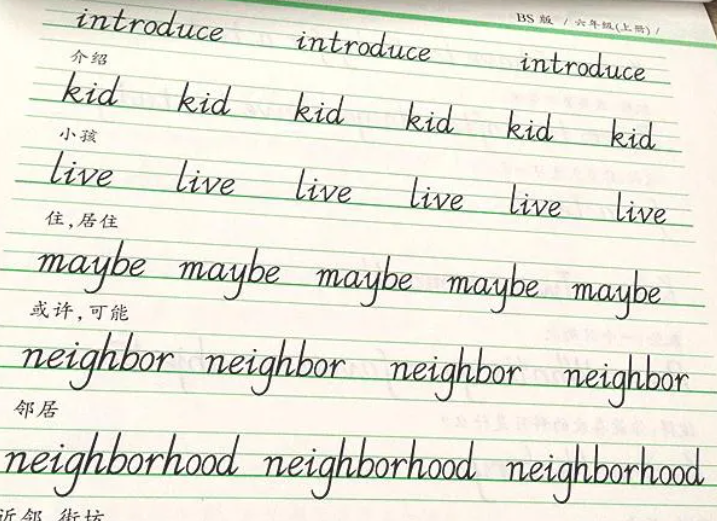 BS 版 / 六年级(上册) /
introduce introduce introduce
介绍
kid kid kid kid kid kid
小孩
live live live live live live
住,居住
maybe maybe maybe maybe maybe
或许,可能
neighbor neighbor neighbor neighbor
邻居
neighborhood neighborhood neighborhood
近邻 街坊